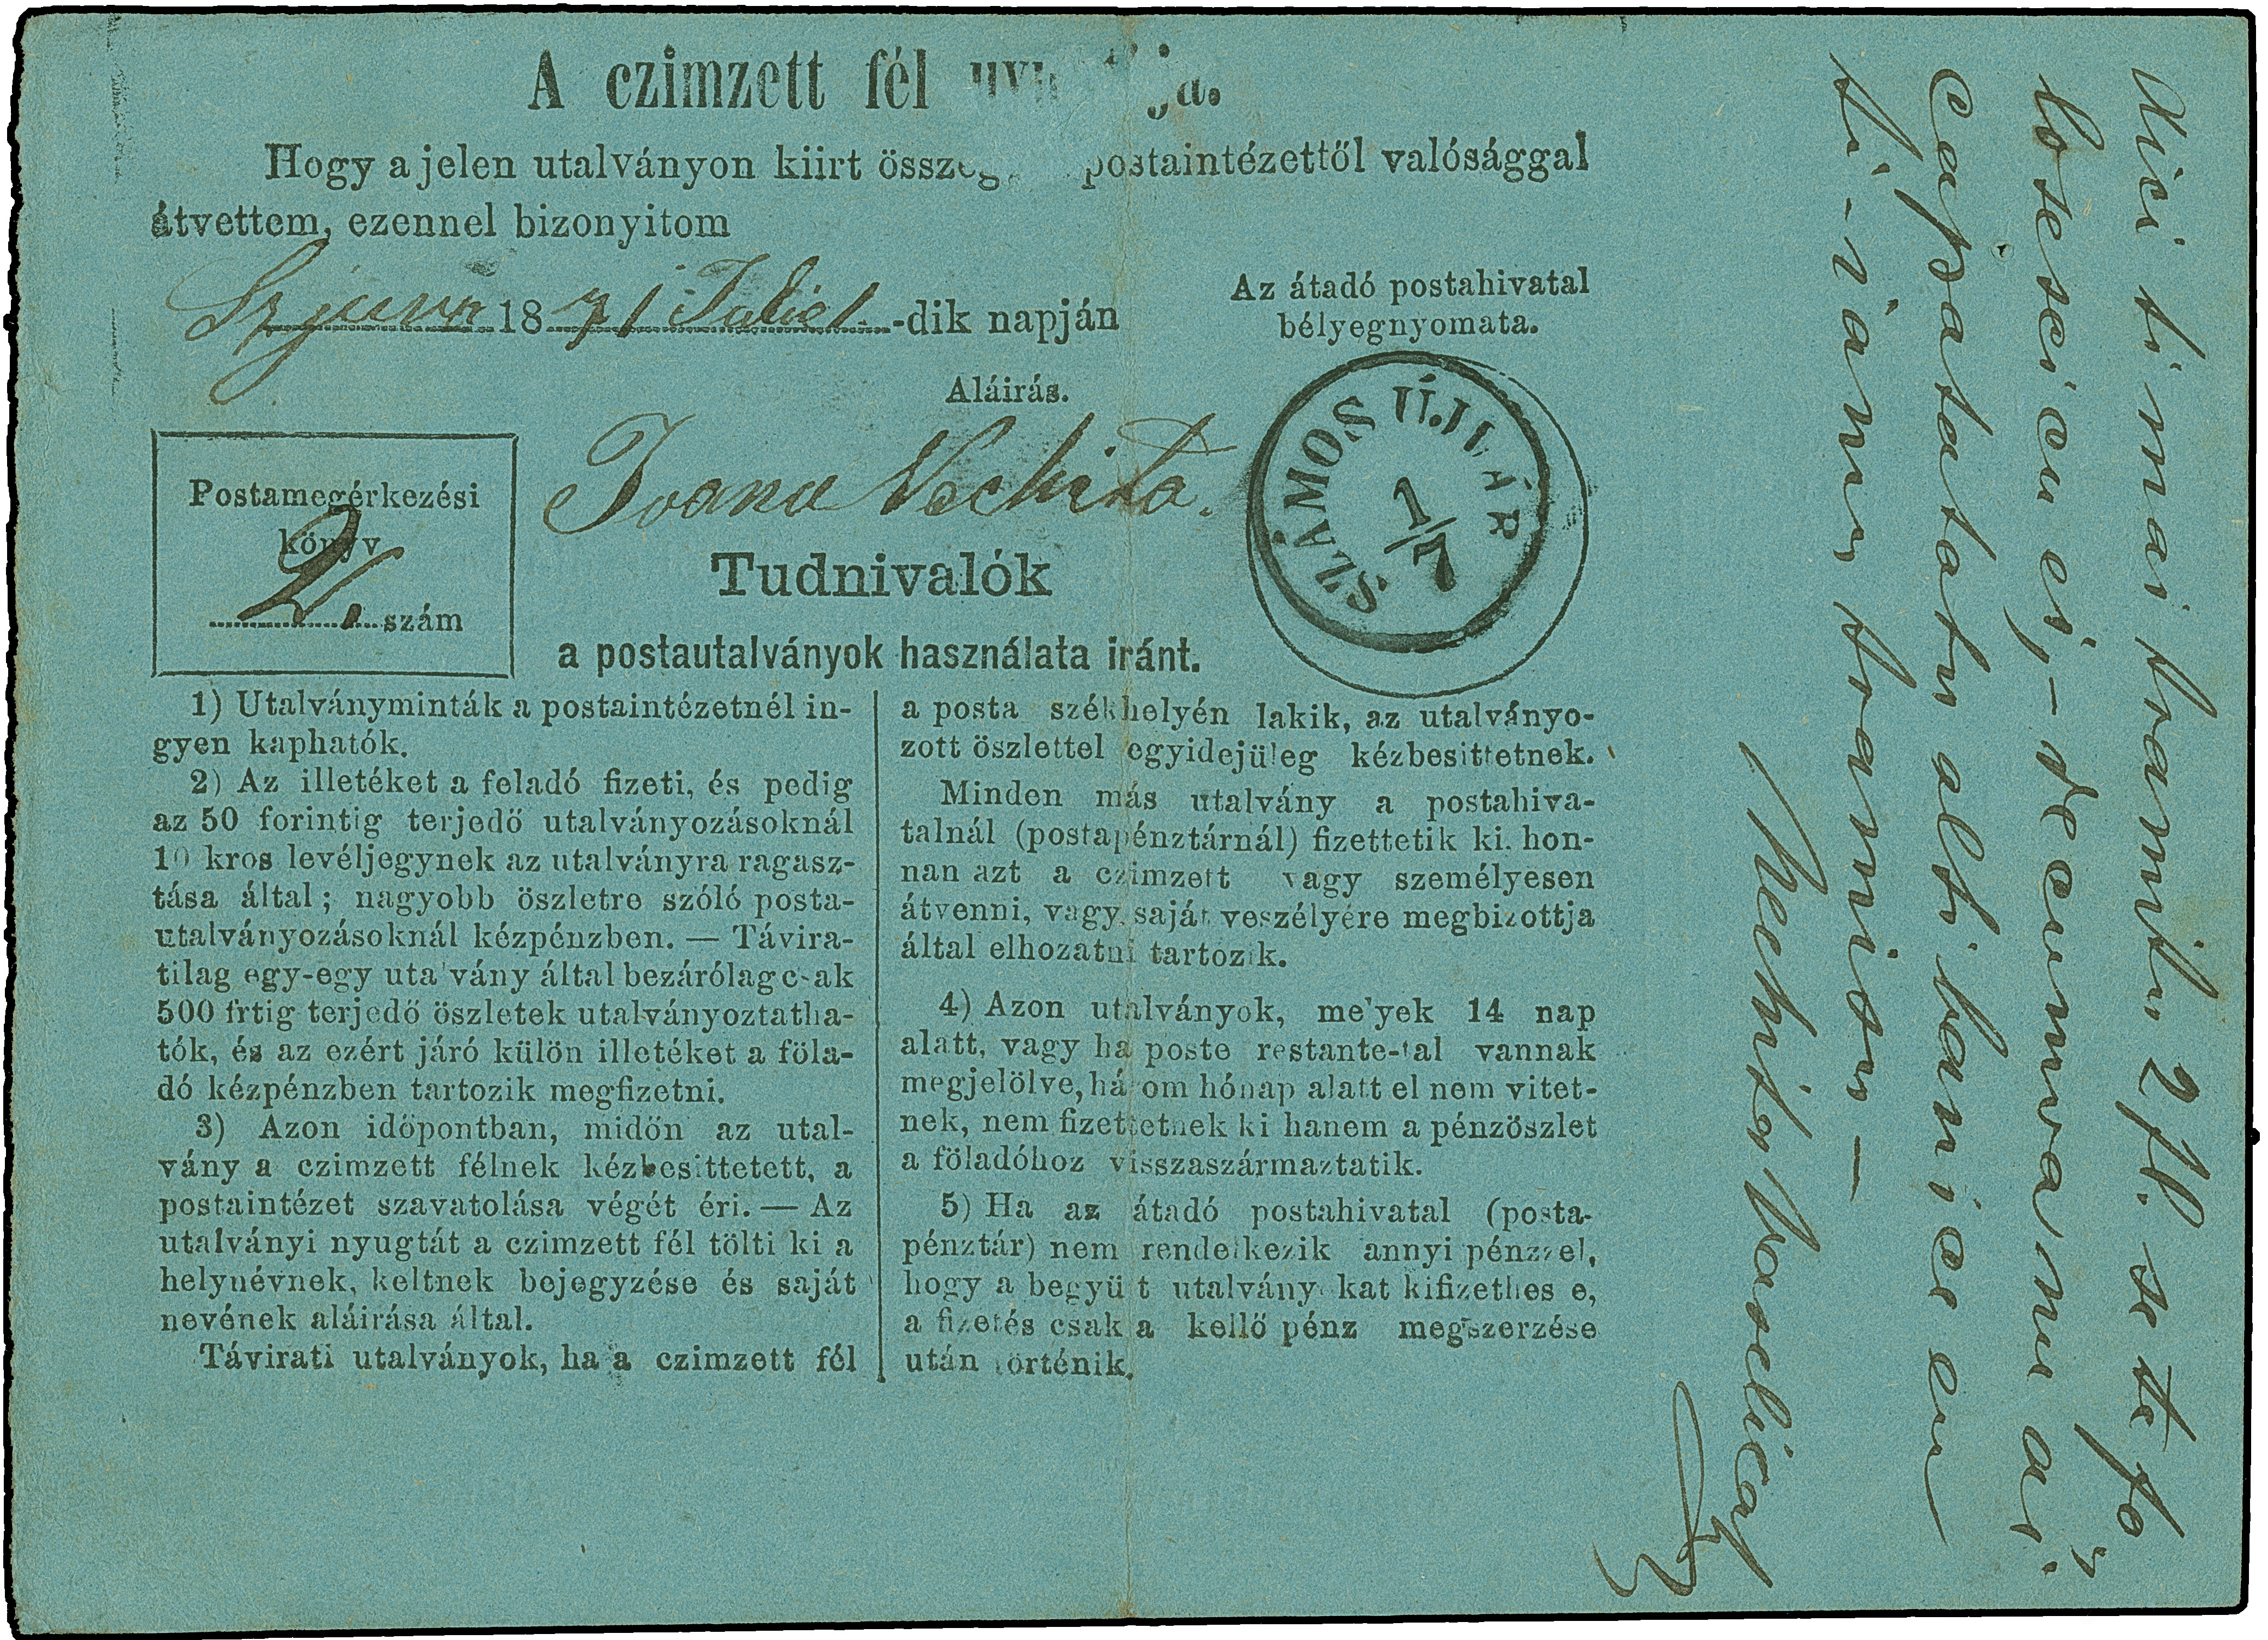 A czimzett fél
Hogy a jelen utalványon kiirt postaintézettől valósággal
átvettem, ezennel bizonyitom
1871 Julie 1 -dik napján
Az átadó postahivatal
bélyegnyomata.
Aláirás.
Ioanu Nechita.
SZÁMOS ÚJVÁR
1/7
Postamegérkezési
könyv
2. szám
Tudnivalók
a postautalványok használata iránt.
1) Utalványminták a postaintézetnél in-
gyen kaphatók.
2) Az illetéket a feladó fizeti, és pedig
az 50 forintig terjedő utalványozásoknál
10 kros levéljegynek az utalványra ragasz-
tása által; nagyobb öszletre szóló posta-
utalványozásoknál kézpénzben. — Távira-
tilag egy-egy utalvány által bezárólag csak
500 frtig terjedő öszletek utalványoztatha-
tók, és az ezért járó külön illetéket a föla-
dó kézpénzben tartozik megfizetni.
3) Azon időpontban, midőn az utal-
vány a czimzett félnek kézbesittetett, a
postaintézet szavatolása végét éri. — Az
utalványi nyugtát a czimzett fél tölti ki a
helynévnek, keltnek bejegyzése és saját
nevének aláirása által.
Távirati utalványok, ha a czimzett fél
a posta székhelyén lakik, az utalványo-
zott öszlettel egyidejüleg kézbesittetnek.
Minden más utalvány a postahiva-
talnál (postapénztárnál) fizettetik ki, hon-
nan azt a czimzett vagy személyesen
átvenni, vagy saját veszélyére megbizottja
által elhozatni tartozik.
4) Azon utalványok, melyek 14 nap
alatt, vagy ha poste restante-tal vannak
megjelölve, három hónap alatt el nem vitet-
nek, nem fizettetnek ki hanem a pénzöszlet
a föladóhoz visszaszármaztatik.
5) Ha az átadó postahivatal (posta-
pénztár) nem rendelkezik annyi pénzzel,
hogy a begyült utalványokat kifizethesse,
a fizetés csak a kellő pénz megszerzése
után történik.
Aici ti mai tramitu 2 fl. se te fo-
losesci cu ei, – de cumva nu ai
capatatu alti bani ce eu
ti-i amu tramisu —
Nechita Vaselica